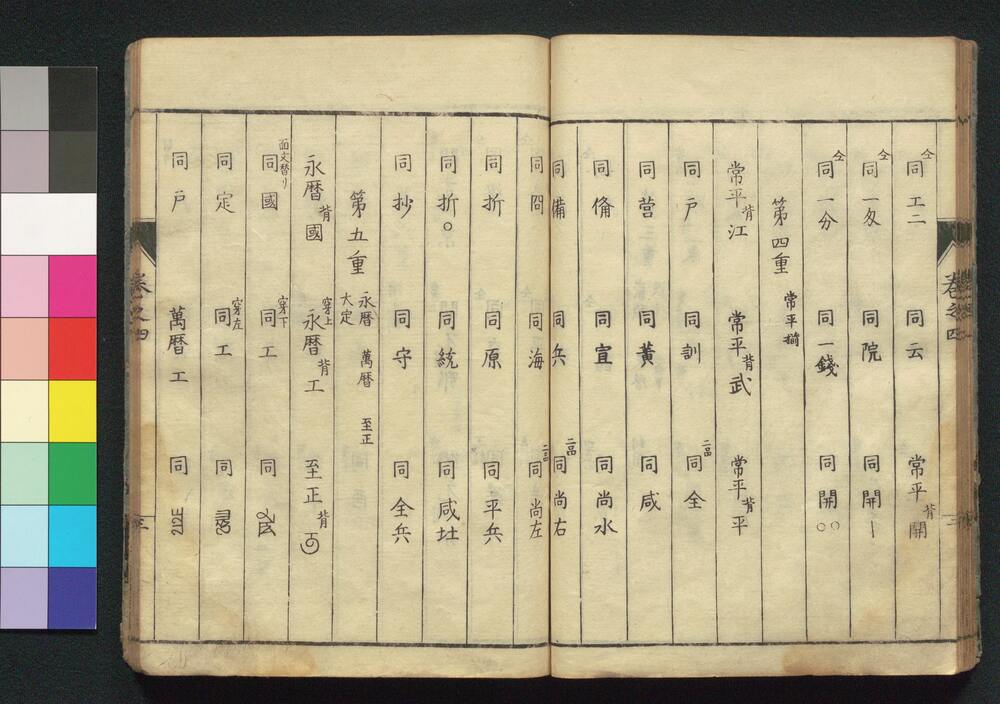 仝同工二 同云 常平背開
仝同一匁 同院 同開一
仝同一分 同一錢 同開○○
第四重 常平
常平背江 常平背武 常平背平
同戸 同訓 二品同全
同営 同黄 同咸
同備 同宣 同尚水
同備 同兵 二品同尚右
同問 同海 二品同尚左
同折 同原 同平兵
同折○ 同統 同咸圡
同抄 同守 同全兵
第五重 永暦 大定 萬暦 至正
永暦背國 穿上永暦背工 至正背
面文替リ同國 穿下同工 同
同定 穿左同工 同
同戸 萬暦工 同
巻之四
三
巻之四